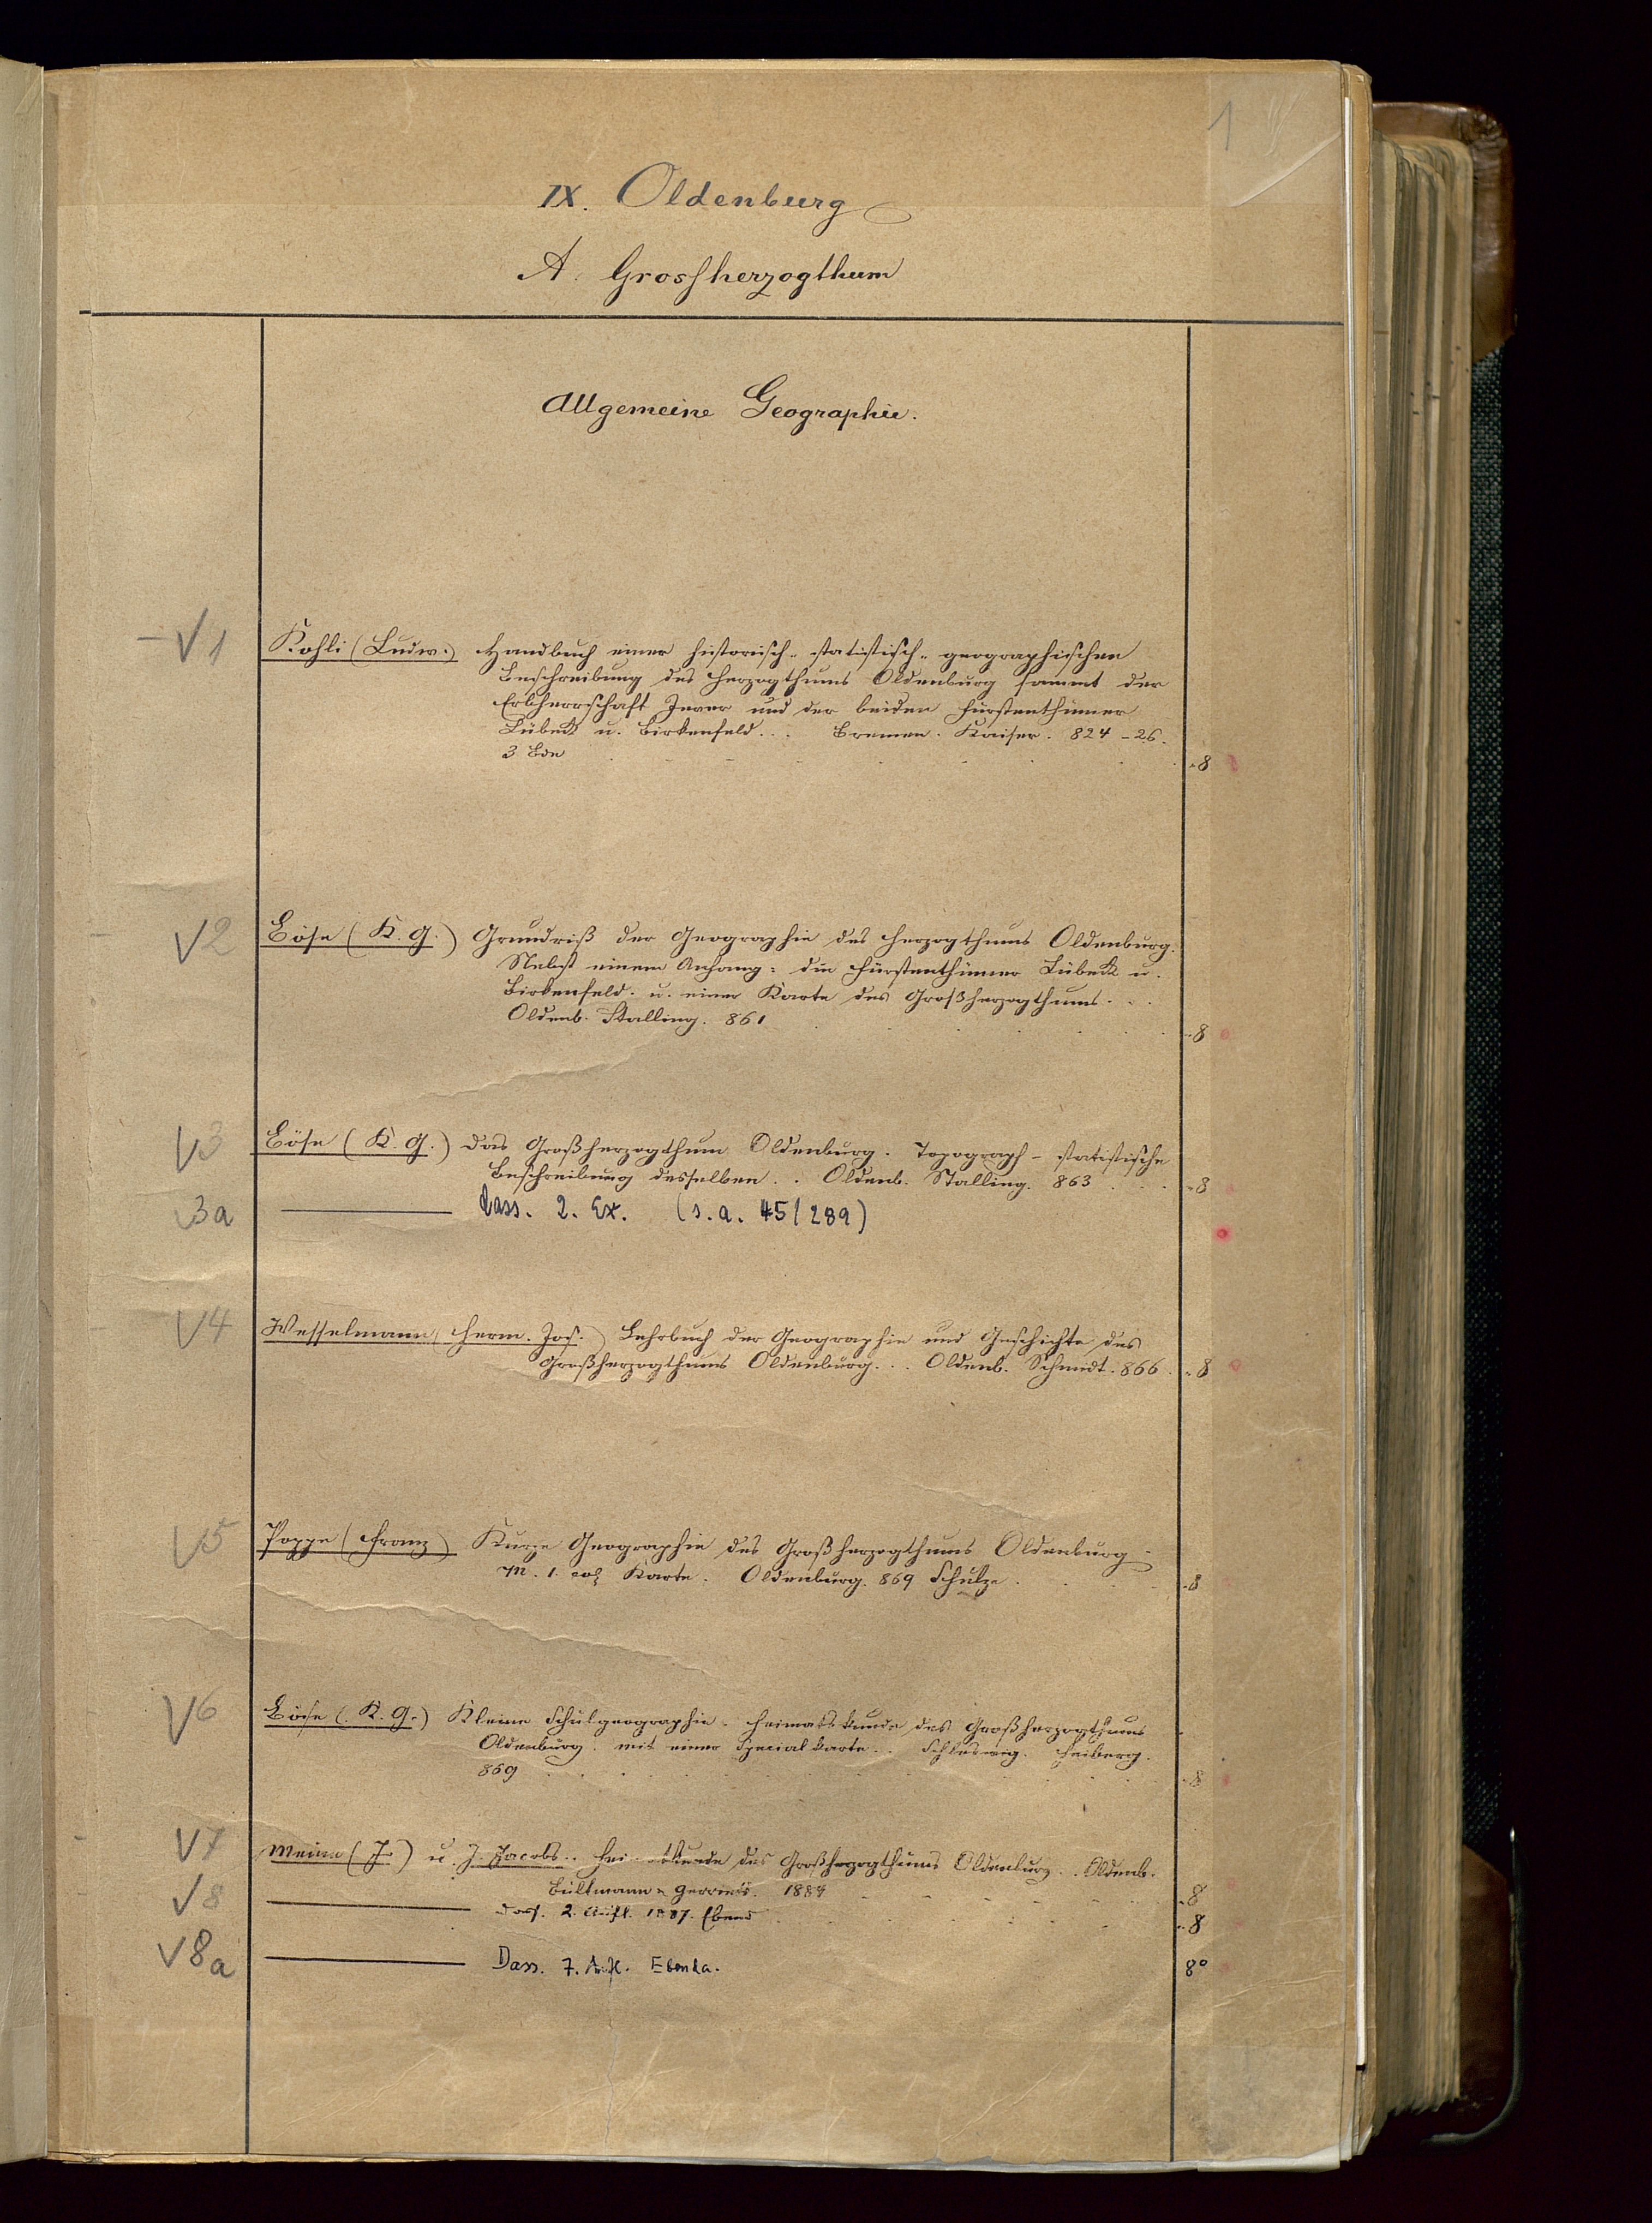 1
IX. Oldenburg
A. Grossherzogthum
Allgemeine Geographie.
V1 Kohli (Ludw.) Handbuch einer historisch-statistisch-geographischen
Beschreibung des Herzogthums Oldenburg sammt der
Erbherrschaft Jever und der beiden Fürstenthümer
Lübeck u. Birkenfeld... Bremen. Kaiser. 824-26.
3 Bde - 8
V2 Böse (K. G.) Grundriß der Geographie des Herzogthums Oldenburg.
Nebst einem Anhang: die Fürstenthümer Lübeck u.
Birkenfeld. u. einer Karte des Großherzogthums...
Oldenb. Stalling. 861 - 8
V3 Böse (K. G.) Das Großherzogthum Oldenburg. Topograph-statistische
Beschreibung desselben.. Oldenb. Stalling. 863 ... - 8
3a ——— dass. 2. Ex. (s. a. 45/289)
V4 Wesselmann (Herm. Jos.) Lehrbuch der Geographie und Geschichte des
Großherzogthums Oldenburg... Oldenb. Schmidt. 866. - 8
V5 Poppe (Franz) Kurze Geographie des Großherzogthums Oldenburg
M. 1. col. Karte. Oldenburg. 869 Schulze. - 8
V6 Böse (K. G.) Kleine Schulgeographie. Heimatskunde des Großherzogthums
Oldenburg. mit einer Specialkarte.. Schleswig. Heiberg.
869 - 8
V7 Meine (J.) u. J. Jacobs.. Heimatkunde des Großherzogthums Oldenburg.. Oldenb.
Bültmann u. Gerriets. 1884 - 8
V8 ——— Dass. 2. Aufl. 1887. Ebend - 8
V8a ——— Dass. 7. Aufl. Ebenda. 8°